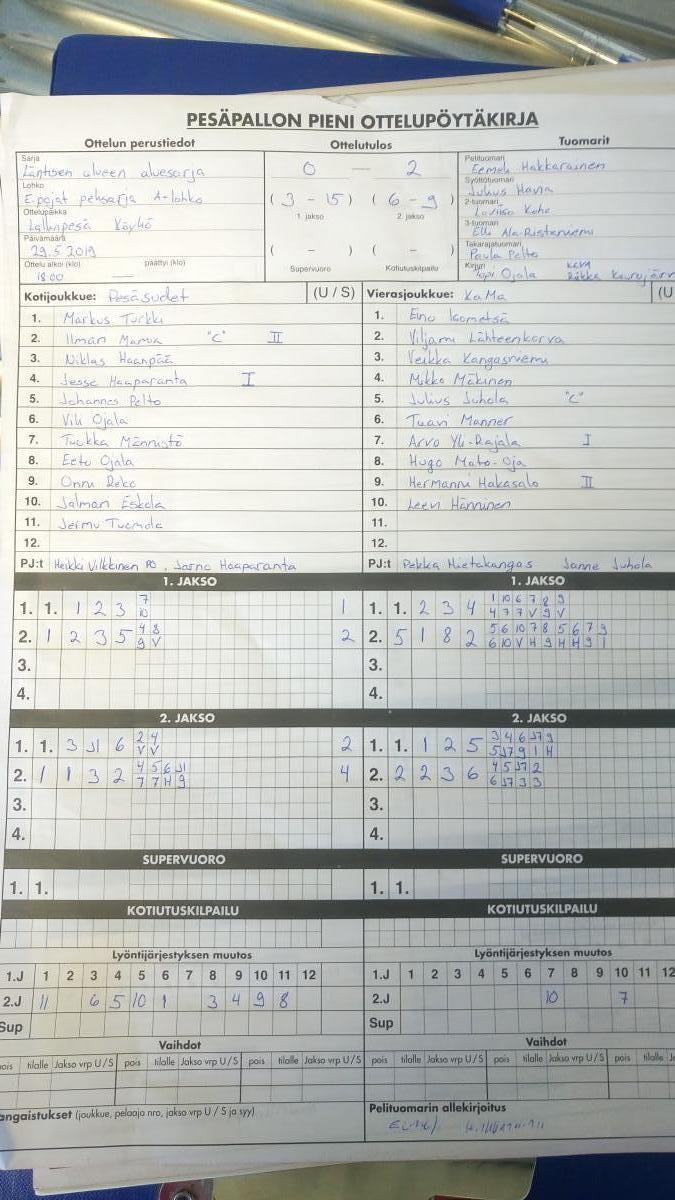 PESÄPALLON PIENI OTTELUPÖYTÄKIRJA
Ottelun perustiedot Ottelutulos Tuomarit
Sarja
Läntisen alueen aluesarja
Lohko
E-pojat pehsarja A-lohko
Ottelupaikka
Lallunpesä Köyhö
Päivämäärä
29.5.2019
Ottelu alkoi (klo) päättyi (klo)
18.00 —
0 — 2
( 3 - 15 ) ( 6 - 9 )
1. jakso 2. jakso
( - ) ( - )
Supervuoro Kotiutuskilpailu
Pelituomari
Eemeli Hakkarainen
Syöttötuomari
Julius Havia
2-tuomari
Loviisa Keho
3-tuomari
Elli Ala-Risteriniemi
Takarajatuomari
Paula Pelto
Kirjuri
Topi Ojala
Kotijoukkue: Pesäsudet (U / S) Vierasjoukkue: KaMa (U
1. Markus Turkki 1. Eino Isometsä
2. Ilmari Mamia "C" II 2. Viljami Lähteenkorva
3. Niklas Haanpää 3. Veikka Kangasniemi
4. Jesse Haaparanta I 4. Mikko Mäkinen
5. Johannes Pelto 5. Julius Juhola "C"
6. Vili Ojala 6. Tuavi Manner
7. Tuukka Männistö 7. Arvo Yli-Rajala I
8. Eetu Ojala 8. Hugo Mato-Oja
9. Onni Reko 9. Hermanni Hakasalo II
10. Jalmari Eskola 10. Leevi Hänninen
11. Jermu Tuomola 11.
12. 12.
PJ:t Heikki Vilkkinen PO, Jarno Haaparanta PJ:t Pekka Hietakangas Janne Juhola
1. JAKSO 1. JAKSO
7 1 10 6 7 8 9
1. 1. 1 2 3 10 1 1. 1. 2 3 4 4 7 7 V 9 V
4 8 5 6 10 7 8 5 6 7 9
2. 1 2 3 5 9 V 2 2. 5 1 8 2 6 10 V H 9 H H 9 1
3. 3.
4. 4.
2. JAKSO 2. JAKSO
2 4 3 4 6 J7 9
1. 1. 3 J1 6 V V 2 1. 1. 1 2 5 5 J7 9 1 H
4 5 6 J1 4 5 J7 2
2. 1 1 3 2 7 7 H 9 4 2. 2 2 3 6 6 J7 3 3
3. 3.
4. 4.
SUPERVUORO SUPERVUORO
1. 1. 1. 1.
KOTIUTUSKILPAILU KOTIUTUSKILPAILU
Lyöntijärjestyksen muutos Lyöntijärjestyksen muutos
1.J 1 2 3 4 5 6 7 8 9 10 11 12 1.J 1 2 3 4 5 6 7 8 9 10 11 12
2.J 11 6 5 10 1 3 4 9 8 2.J 10 7
Sup Sup
Vaihdot Vaihdot
pois tilalle Jakso vrp U / S pois tilalle Jakso vrp U / S pois tilalle Jakso vrp U / S pois tilalle Jakso vrp U / S pois tilalle Jakso vrp U / S pois tilalle
angaistukset (joukkue, pelaaja nro, jakso vrp U / S ja syy) Pelituomarin allekirjoitus